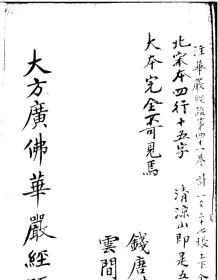 注華嚴經疏第四十六卷 計一百二十七張 上下
北宋本四行十五字 清涼山即是五
大本完全 可見焉
錢唐
雲間
大方廣佛華嚴經